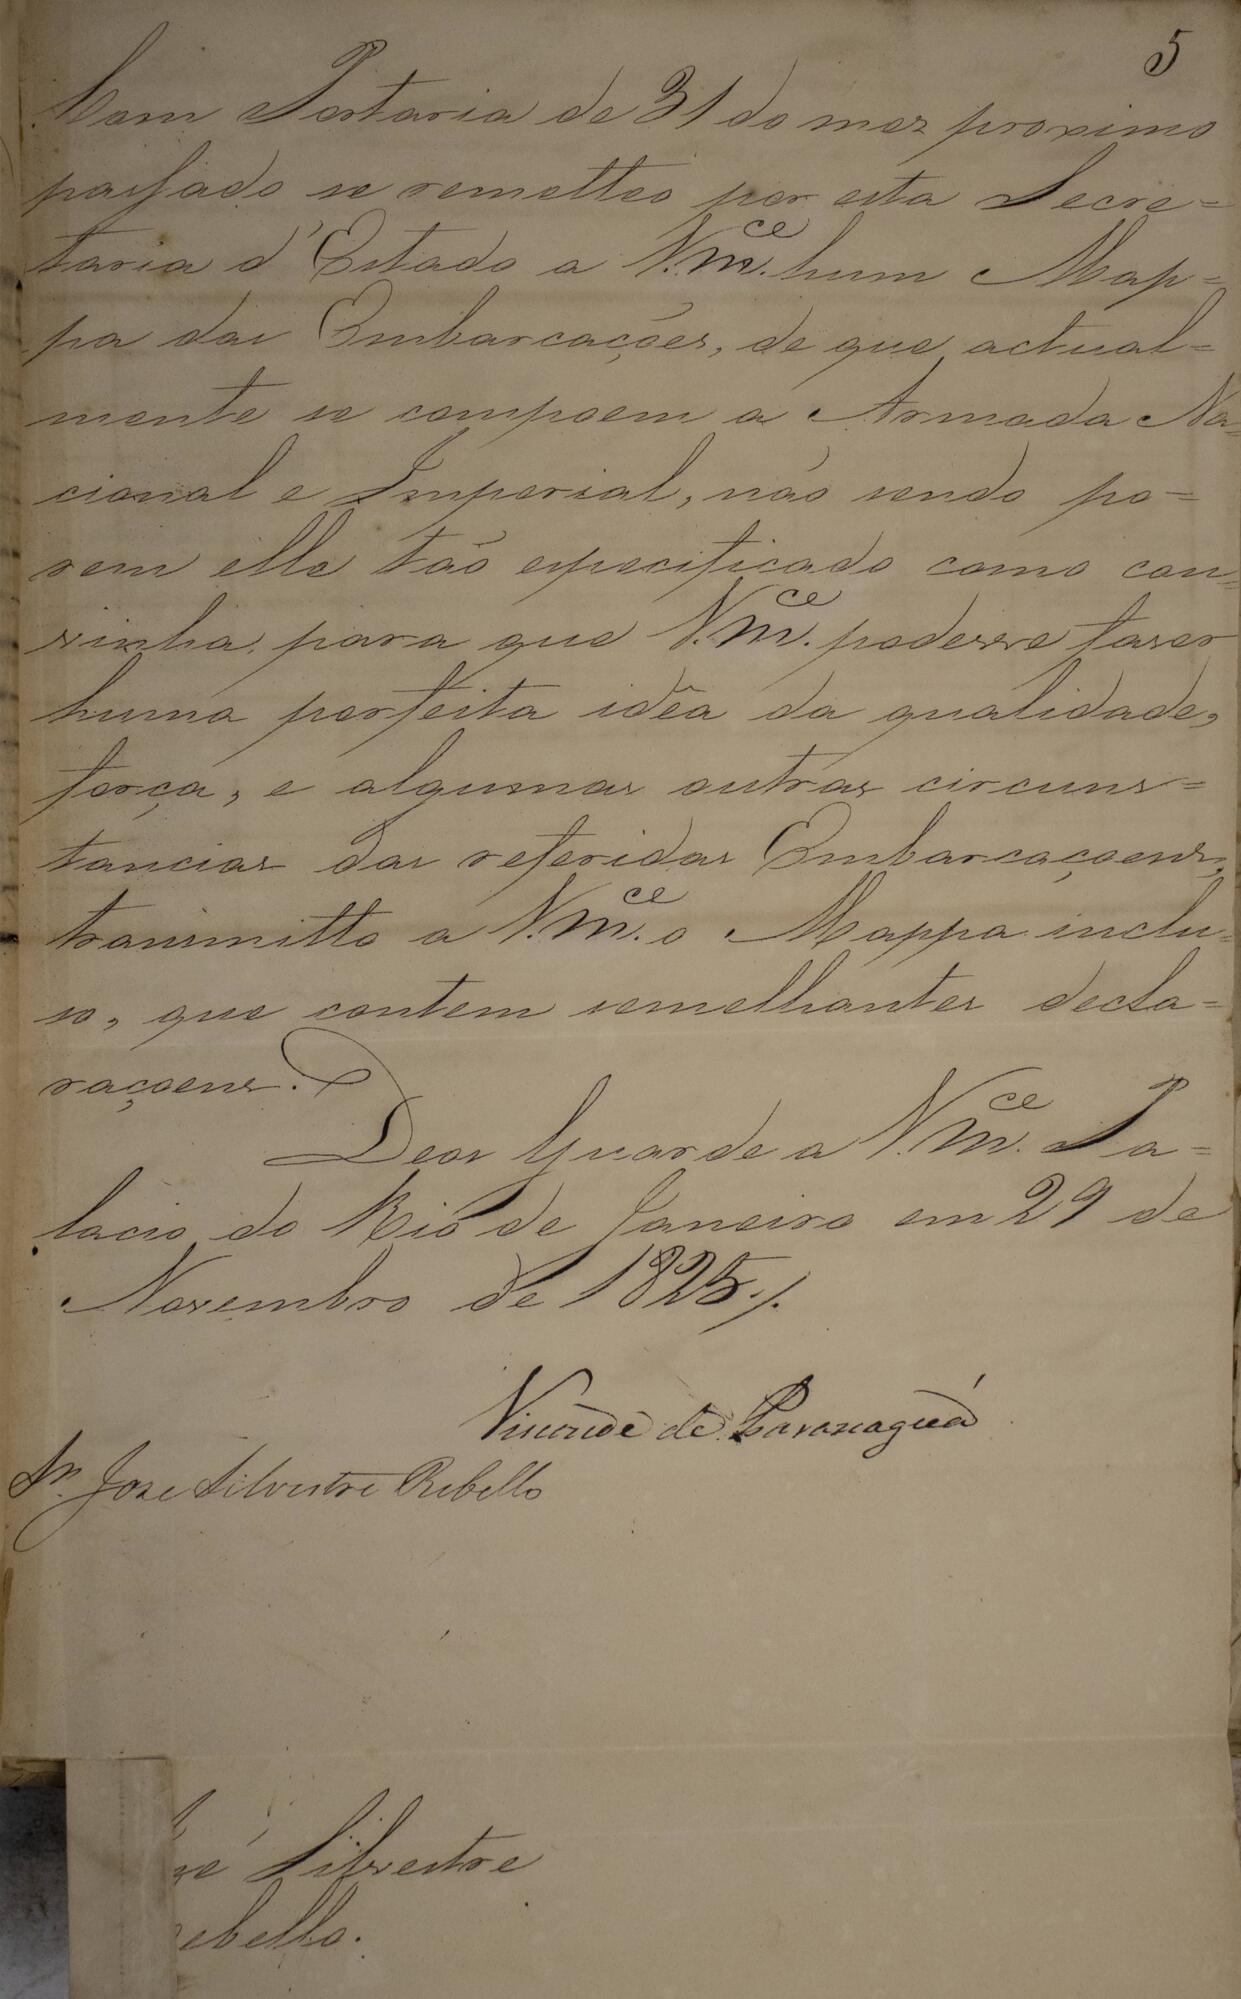 5
Com Portaria de 31 do mez proximo
passado se remetteo por esta Secre=
taria d'Estado a V.mce. hum Map=
pa das Embarcações, de que actual=
mente se compoem a Armada Na=
cional e Imperial, não sendo po=
rem elle tão especificado como con=
vinha, para que V.mce. podesse fazer
huma perfeita idêa da qualidade,
força, e algumas outras circuns=
tancias das referidas Embarcaçoens,
transmitto a V.mce. o Mappa inclu=
so, que contem semelhantes decla=
raçoens.
Deos Guarde a V.mce. Pa=
lacio do Rio de Janeiro em 29 de
Novembro de 1825./.
Visconde de Paranaguá
Sr. Joze Silvestre Rebello
ze Silvestre
ebello.